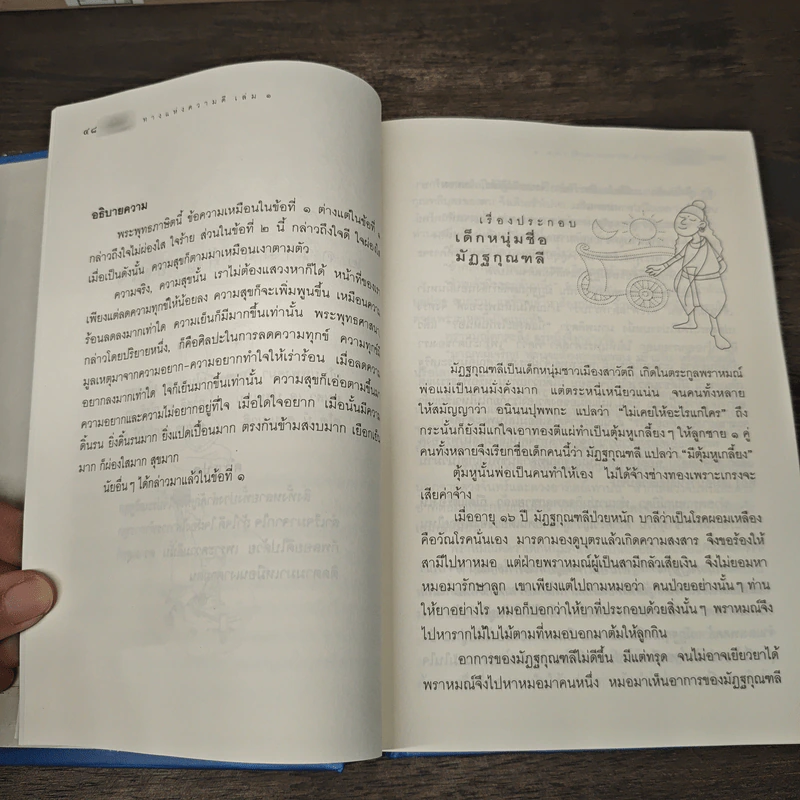 ๔๘ ทางแห่งความดี เล่ม ๑
อธิบายความ
พระพุทธภาษิตนี้ ข้อความเหมือนในข้อที่ ๑ ต่างแต่ในข้อที่ ๑
กล่าวถึงใจไม่ผ่องใส ใจร้าย ส่วนในข้อที่ ๒ นี้ กล่าวถึงใจดี ใจผ่องใส
เมื่อเป็นดังนั้น ความสุขก็ตามมาเหมือนเงาตามตัว
ความจริง, ความสุขนั้น เราไม่ต้องแสวงหาก็ได้ หน้าที่ของเรา
เพียงแต่ลดความทุกข์ให้น้อยลง ความสุขก็จะเพิ่มพูนขึ้น เหมือนความ
ร้อนลดลงมากเท่าใด ความเย็นก็มีมากขึ้นเท่านั้น พระพุทธศาสนา
กล่าวโดยปริยายหนึ่ง, ก็คือศิลปะในการลดความทุกข์ ความทุกข์มี
มูลเหตุมาจากความอยาก-ความอยากทำใจให้เร่าร้อน เมื่อลดความ
อยากลงมากเท่าใด ใจก็เย็นมากขึ้นเท่านั้น ความสุขก็เอ่อตามขึ้นมา
ความอยากและความไม่อยากอยู่ที่ใจ เมื่อใดใจอยาก เมื่อนั้นมีความ
ดิ้นรน ยิ่งดิ้นรนมาก ยิ่งแปดเปื้อนมาก ตรงกันข้ามสงบมาก เยือกเย็น
มาก ก็ผ่องใสมาก สุขมาก
นัยอื่นๆ ได้กล่าวมาแล้วในข้อที่ ๑
เรื่องประกอบ
เด็กหนุ่มชื่อ
มัฏฐกุณฑลี
มัฏฐกุณฑลีเป็นเด็กหนุ่มชาวเมืองสาวัตถี เกิดในตระกูลพราหมณ์
พ่อแม่เป็นคนมั่งคั่งมาก แต่ตระหนี่เหนียวแน่น จนคนทั้งหลาย
ให้สมัญญาว่า อนินนปุพพกะ แปลว่า “ไม่เคยให้อะไรแก่ใคร” ถึง
กระนั้นก็ยังมีแก่ใจเอาทองตีแผ่ทำเป็นตุ้มหูเกลี้ยงๆ ให้ลูกชาย ๑ คู่
คนทั้งหลายจึงเรียกชื่อเด็กคนนี้ว่า มัฏฐกุณฑลี แปลว่า “มีตุ้มหูเกลี้ยง”
ตุ้มหูนั้นพ่อเป็นคนทำให้เอง ไม่ได้จ้างช่างทองเพราะเกรงจะ
เสียค่าจ้าง
เมื่ออายุ ๑๖ ปี มัฏฐกุณฑลีป่วยหนัก บาลีว่าเป็นโรคผอมเหลือง
คือวัณโรคนั่นเอง มารดามองดูบุตรแล้วเกิดความสงสาร จึงขอร้องให้
สามีไปหาหมอ แต่ฝ่ายพราหมณ์ผู้เป็นสามีกลัวเสียเงิน จึงไม่ยอมหา
หมอมารักษาลูก เขาเพียงแต่ไปถามหมอว่า คนป่วยอย่างนั้นๆ ท่าน
ให้ยาอย่างไร หมอก็บอกว่าให้ยาที่ประกอบด้วยสิ่งนั้นๆ พราหมณ์จึง
ไปหารากไม้ใบไม้ตามที่หมอบอกมาต้มให้ลูกกิน
อาการของมัฏฐกุณฑลีไม่ดีขึ้น มีแต่ทรุด จนไม่อาจเยียวยาได้
พราหมณ์จึงไปหาหมอมาคนหนึ่ง หมอมาเห็นอาการของมัฏฐกุณฑลี